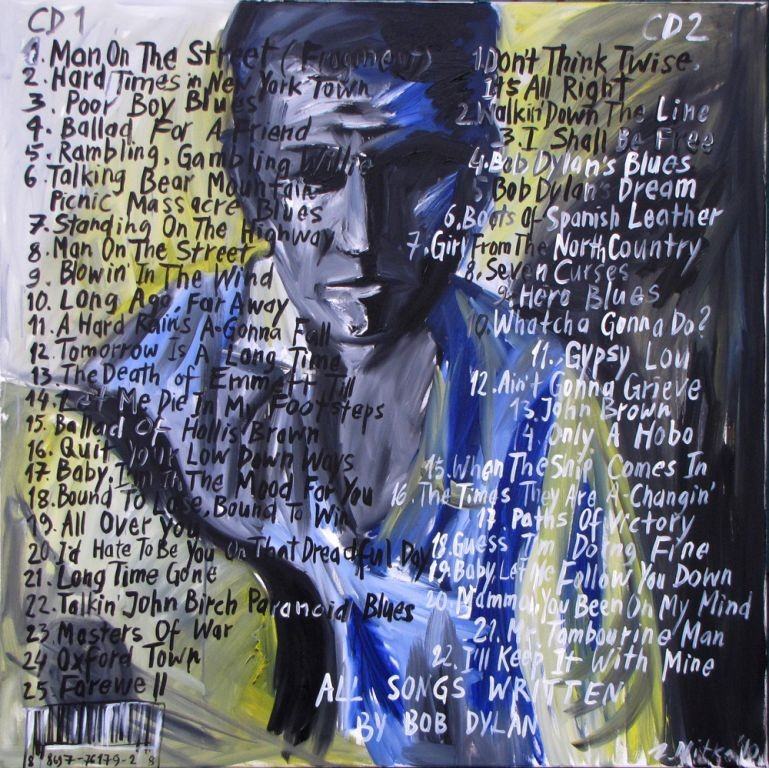 CD 1
1. Man On The Street (Fragment)
2. Hard Times in New York Town
3. Poor Boy Blues
4. Ballad For A Friend
5. Rambling, Gambling Willie
6. Talking Bear Mountain
Picnic Massacre Blues
7. Standing On The Highway
8. Man On The Street
9. Blowin' In The Wind
10. Long Ago, Far Away
11. A Hard Rain's A-Gonna Fall
12. Tomorrow Is A Long Time
13. The Death of Emmett Till
14. Let Me Die In My Footsteps
15. Ballad Of Hollis Brown
16. Quit Your Low Down Ways
17. Baby, I'm In The Mood For You
18. Bound To Lose, Bound To Win
19. All Over You
20. I'd Hate To Be You On That Dreadful Day
21. Long Time Gone
22. Talkin' John Birch Paranoid Blues
23. Masters Of War
24 Oxford Town
25. Farewell
CD 2
1. Don't Think Twise,
It's All Right
2. Walkin' Down The Line
3. I Shall Be Free
4. Bob Dylan's Blues
5 Bob Dylan's Dream
6. Boots Of Spanish Leather
7. Girl From The North Country
8. Seven Curses
9. Hero Blues
10. Whatcha Gonna Do?
11. Gypsy Lou
12. Ain't Gonna Grieve
13. John Brown
4. Only A Hobo
15. When The Ship Comes In
16. The Times They Are A-Changin'
17. Paths Of Victory
18. Guess I'm Doing Fine
19. Baby, Let Me Follow You Down
20. Mamma, You Been On My Mind
21. Mr. Tambourine Man
22. I'll Keep It With Mine
ALL SONGS WRITTEN
BY BOB DYLAN
8 8697-76179-2